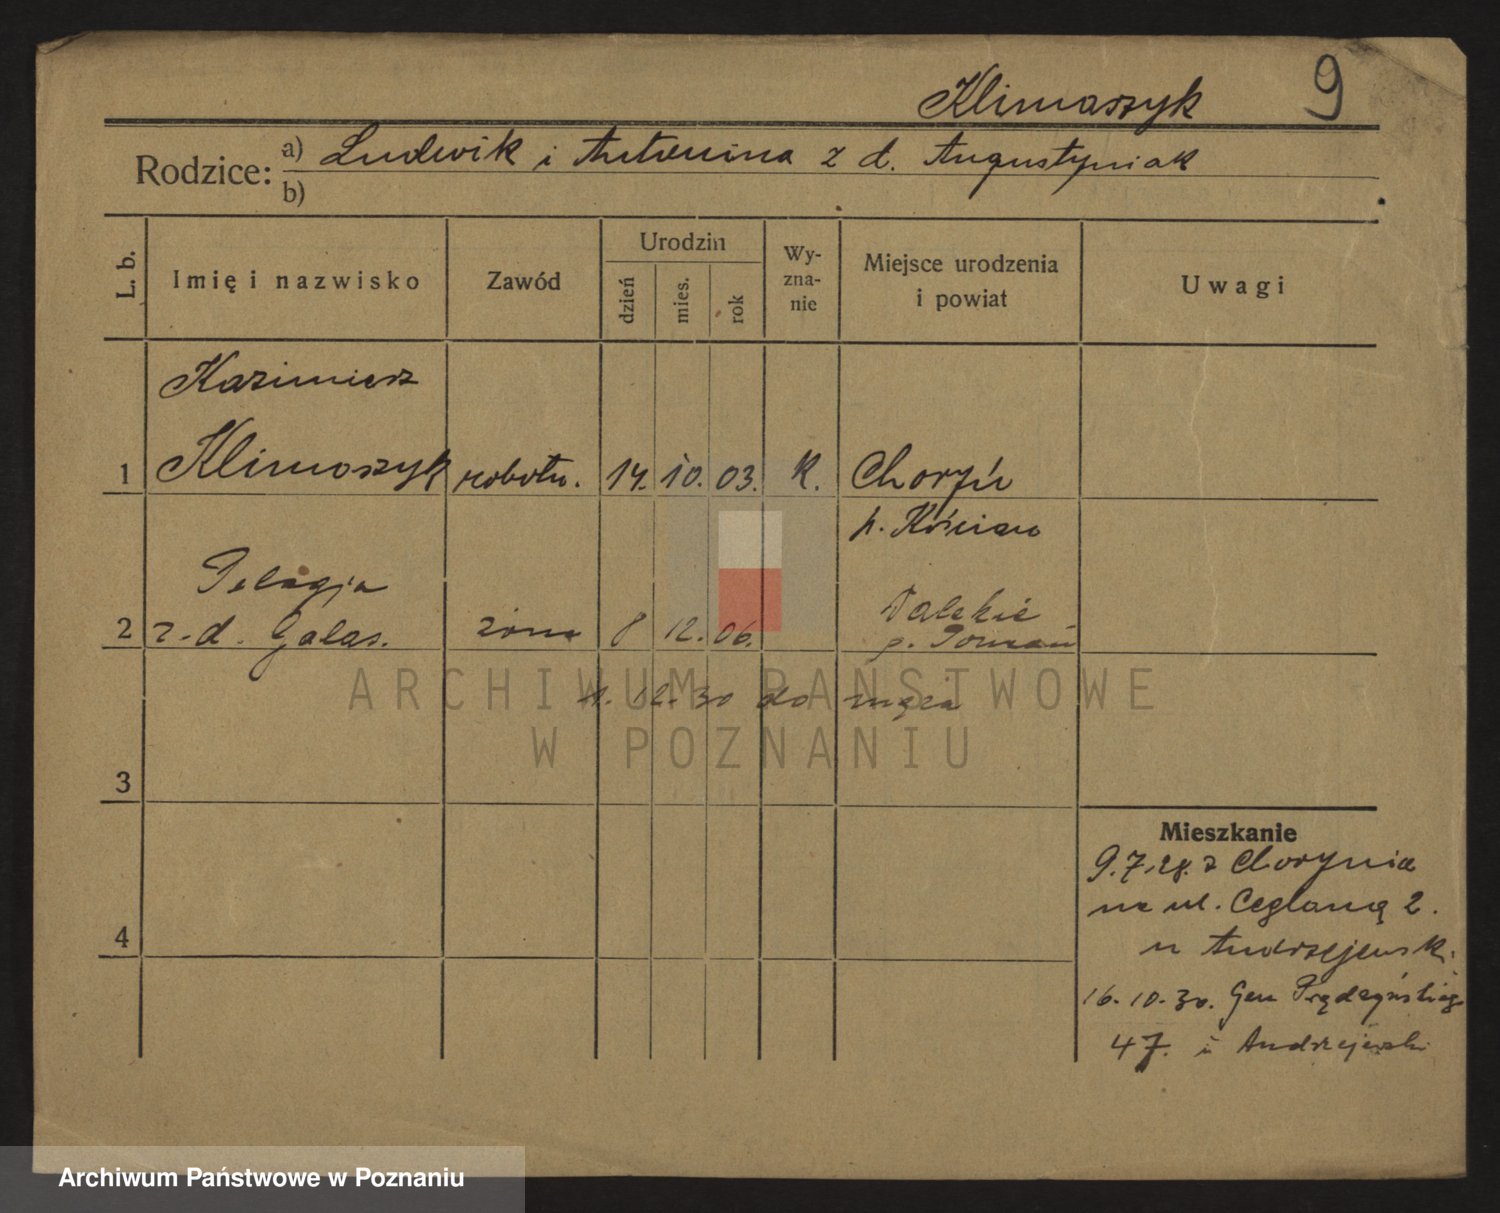 Klimaszyk 9
Rodzice: a) Ludwik i Antonina z d. Augustyniak
b)
L. b. Imię i nazwisko Zawód Urodzin dzień mies. rok Wyzna-nie Miejsce urodzenia i powiat Uwagi
Kazimierz
1 Klimaszyk robotn. 14. 10. 03. k. Choryń
p. Kościan
Pelagja Dalekie
2 z-d. Galas. żona 8 12. 06. p. Poznań
1. 12. 30 do męża
ARCHIWUM PAŃSTWOWE
W POZNANIU
3
Mieszkanie
9.7.28. z Chorynia
na ul. Ceglaną 2.
4
u Andrzejewsk.
16. 10. 30. Gen Prądzyńskiego
47. u Andrzejewski
Archiwum Państwowe w Poznaniu